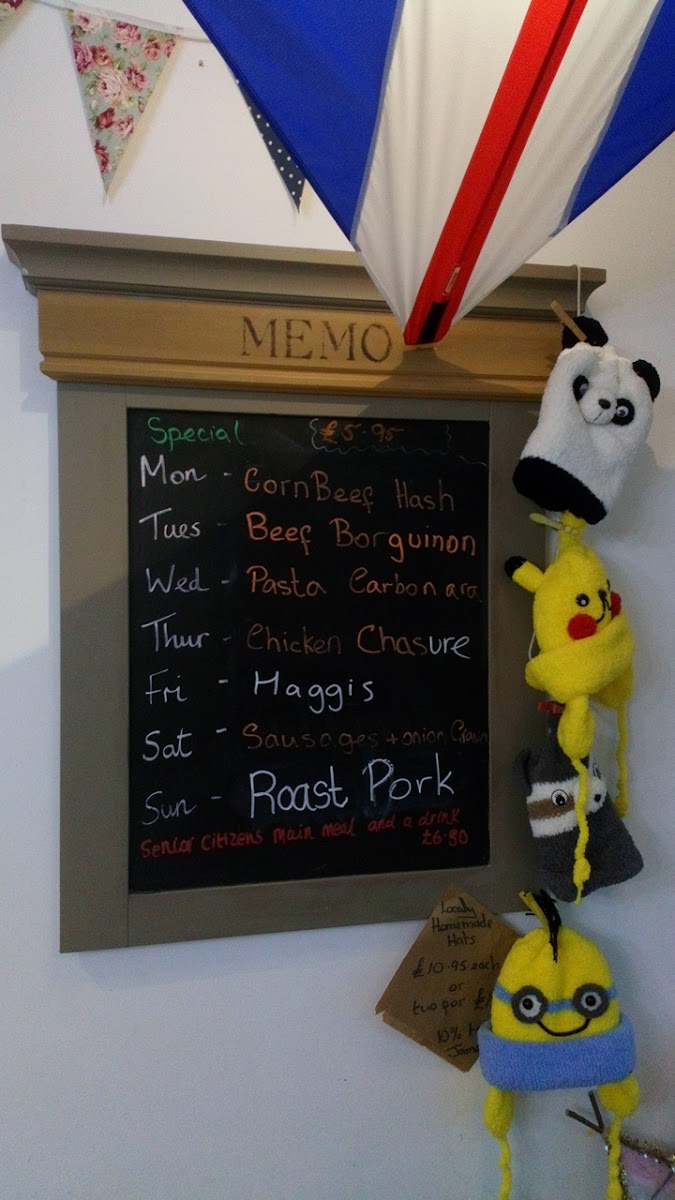 MEMO
Special {£5.95}
Mon - CornBeef Hash
Tues - Beef Borguinon
Wed - Pasta Carbonara
Thur - Chicken Chasure
Fri - Haggis
Sat - Sausages + onion Grav
Sun - Roast Pork
Senior Citizens main meal and a drink
£6.90
Locally
Homemade
Hats
£10.95 each
or
two for £
10%